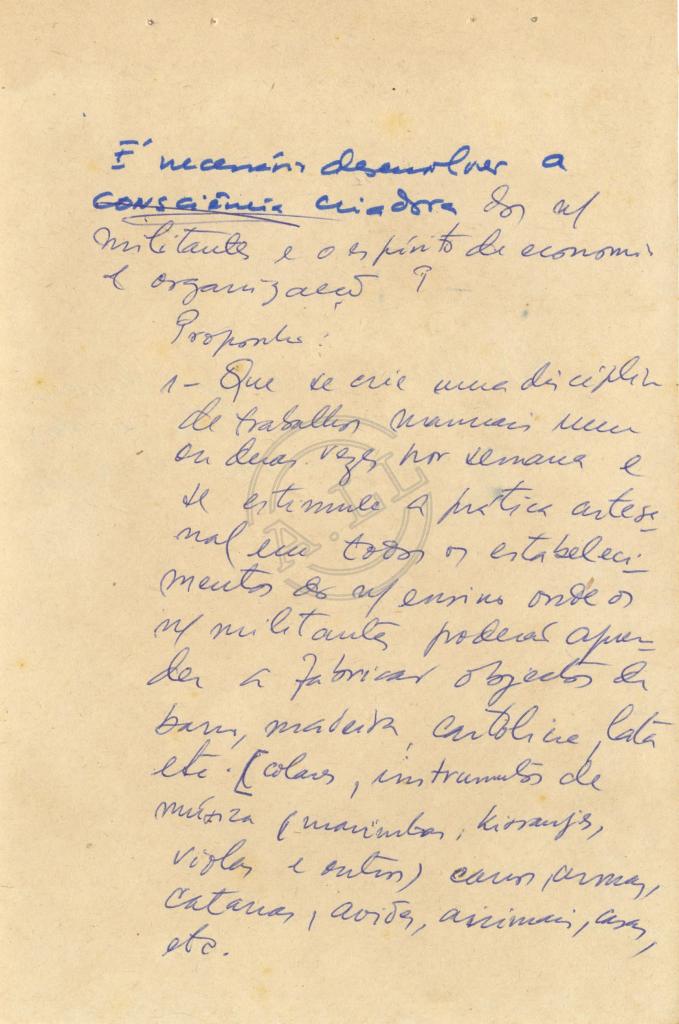 É necessário desenvolver a
consciência criadora dos n/
militantes e o espírito de economia
e organização?
Proponho:
1- Que se crie uma disciplina
de trabalhos manuais uma
ou duas vezes por semana e
se estimule a prática artesa-
nal em todos os estabeleci-
mentos do n/ ensino onde os
n/ militantes poderão apren-
der a fabricar objectos de
barro, madeira, cartolina, lata
etc. [colares, instrumentos de
música (marimbas, kissanjes,
violas e outros) carros, armas,
catanas, aviões, animais, casas,
etc.
A.LL